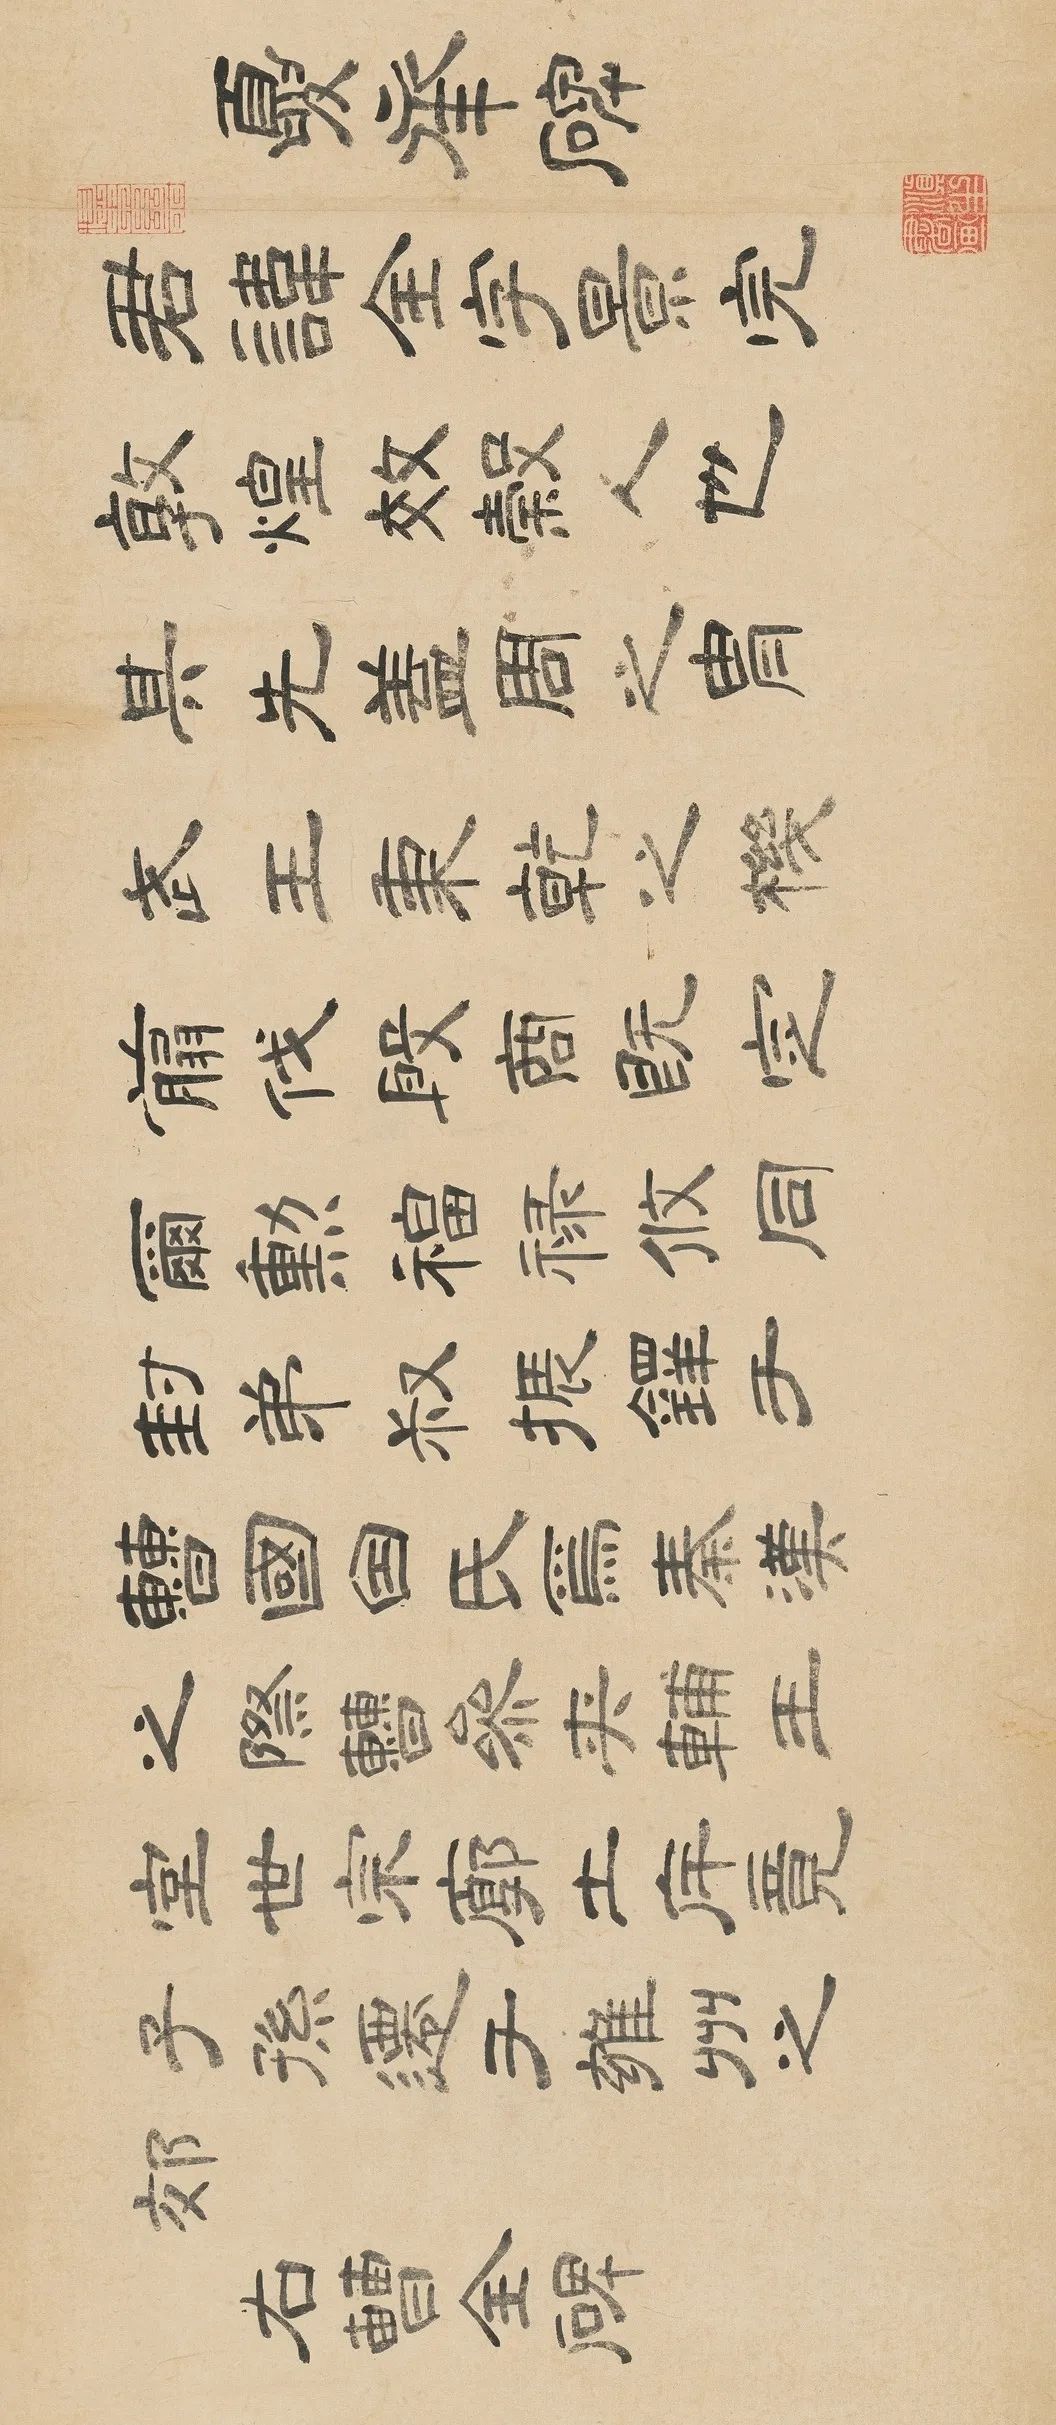 夏承碑
君諱全字景完
敦煌效穀人也
其先蓋周之胄
武王秉乾之機
翦伐殷商既定
爾勲福祿攸同
封弟叔振鐸于
曹國因氏焉秦漢
之際曹參夾輔王
室世宗廓土斥竟
子孫遷于雍州之
郊
右曹全碑